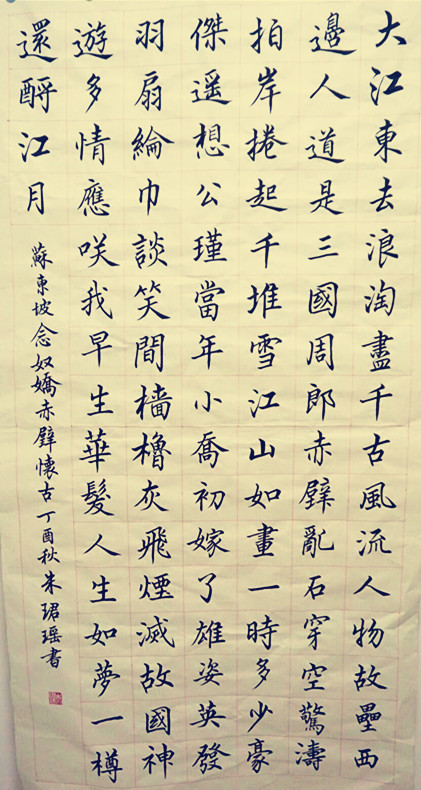 大江東去浪淘盡千古風流人物故壘西
邊人道是三國周郎赤壁亂石穿空驚濤
拍岸捲起千堆雪江山如畫一時多少豪
傑遥想公瑾當年小喬初嫁了雄姿英發
羽扇綸巾談笑間檣櫓灰飛煙滅故國神
遊多情應咲我早生華髮人生如夢一樽
還酹江月
蘇東坡念奴嬌赤壁懷古丁酉秋朱珺瑶書